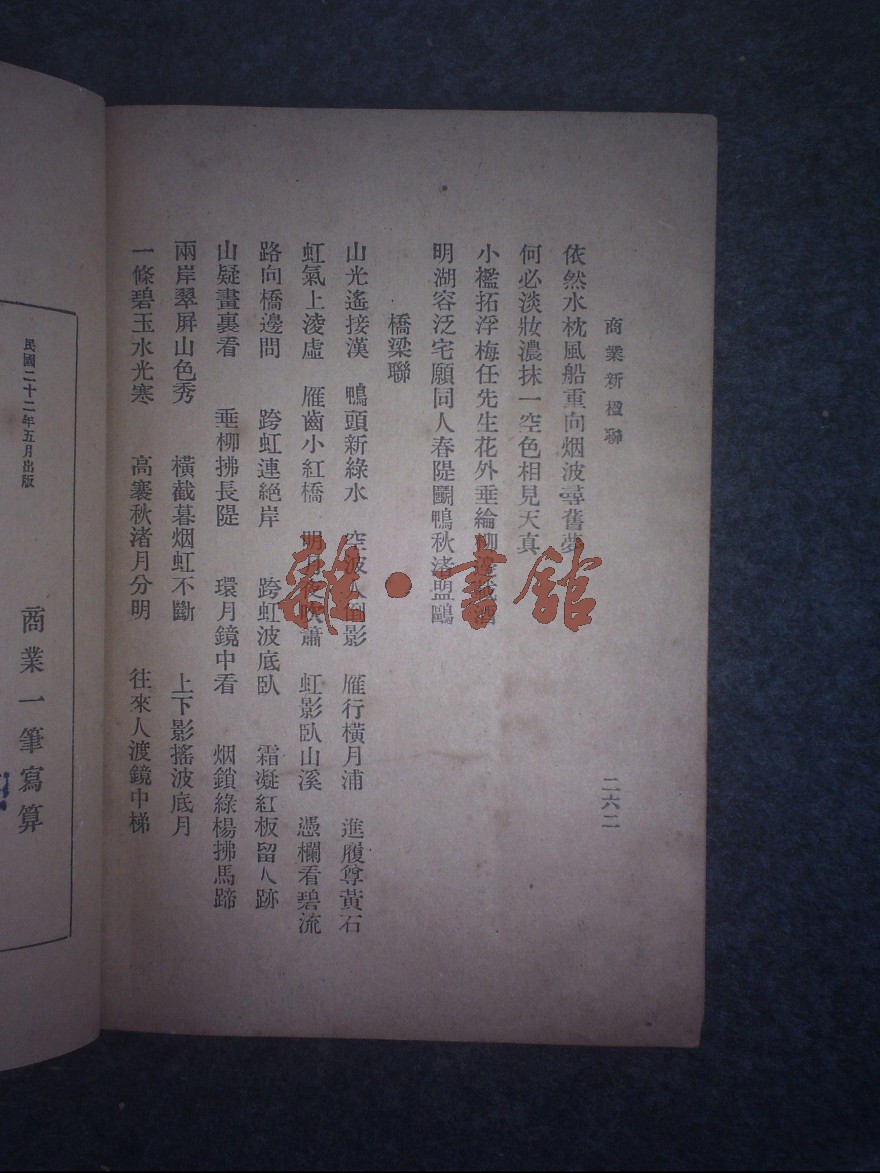 商業新楹聯
二六二
依然水枕風船重向烟波尋舊夢
何必淡妝濃抹一空色相見天真
小檻拓浮梅任先生花外垂綸柳
明湖容泛宅願同人春隄鬬鴨秋渚盟鷗
橋梁聯
山光遙接漢 鴨頭新綠水 空波人倒影 雁行橫月浦 進履尊黃石
虹氣上淩虛 雁齒小紅橋 明月吹簫 虹影臥山溪 憑欄看碧流
路向橋邊問 跨虹連絕岸 跨虹波底臥 霜凝紅板留人跡
山疑畫裏看 垂柳拂長隄 環月鏡中看 烟鎖綠楊拂馬蹄
兩岸翠屏山色秀 橫截暮烟虹不斷 上下影搖波底月
一條碧玉水光寒 高褰秋渚月分明 往來人渡鏡中梯
商業一筆寫算
民國二十二年五月出版
雜·書館